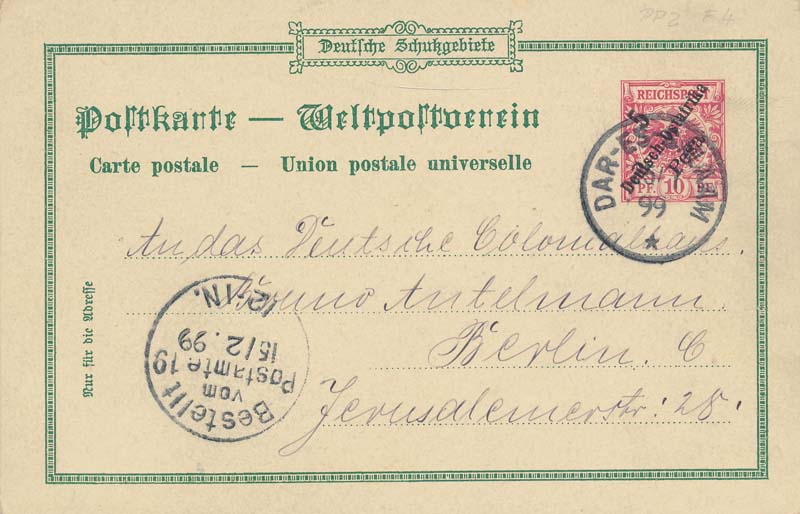 PP2 F4
Deutsche Schutzgebiete
REICHSPOST
5
Deutsch-Ostafrika
Pesa
PF. 10 PF.
DAR-ES
99
Postkarte — Weltpostverein
Carte postale — Union postale universelle
An das Deutsche Colonialhaus.
Bruno Antelmann.
Berlin. C
Jerusalemerstr: 28.
Nur für die Adresse
Bestellt
vom
Postamte 19
15/2.99
12-1N.